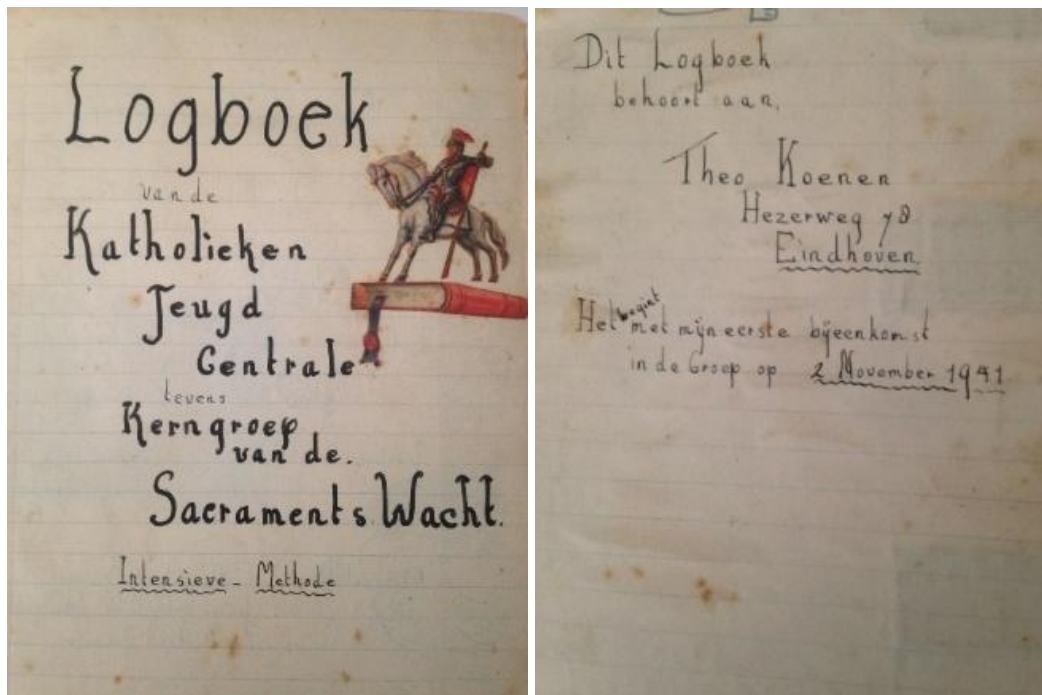 Logboek
van de
Katholieken
Jeugd
Centrale
tevens
Kerngroep
van de.
Sacraments Wacht.
Intensieve - Methode
Dit Logboek
behoort aan,
Theo Koenen
Hezerweg 78
Eindhoven
Het begint met mijn eerste bijeenkomst
in de Groep op 2 November 1941